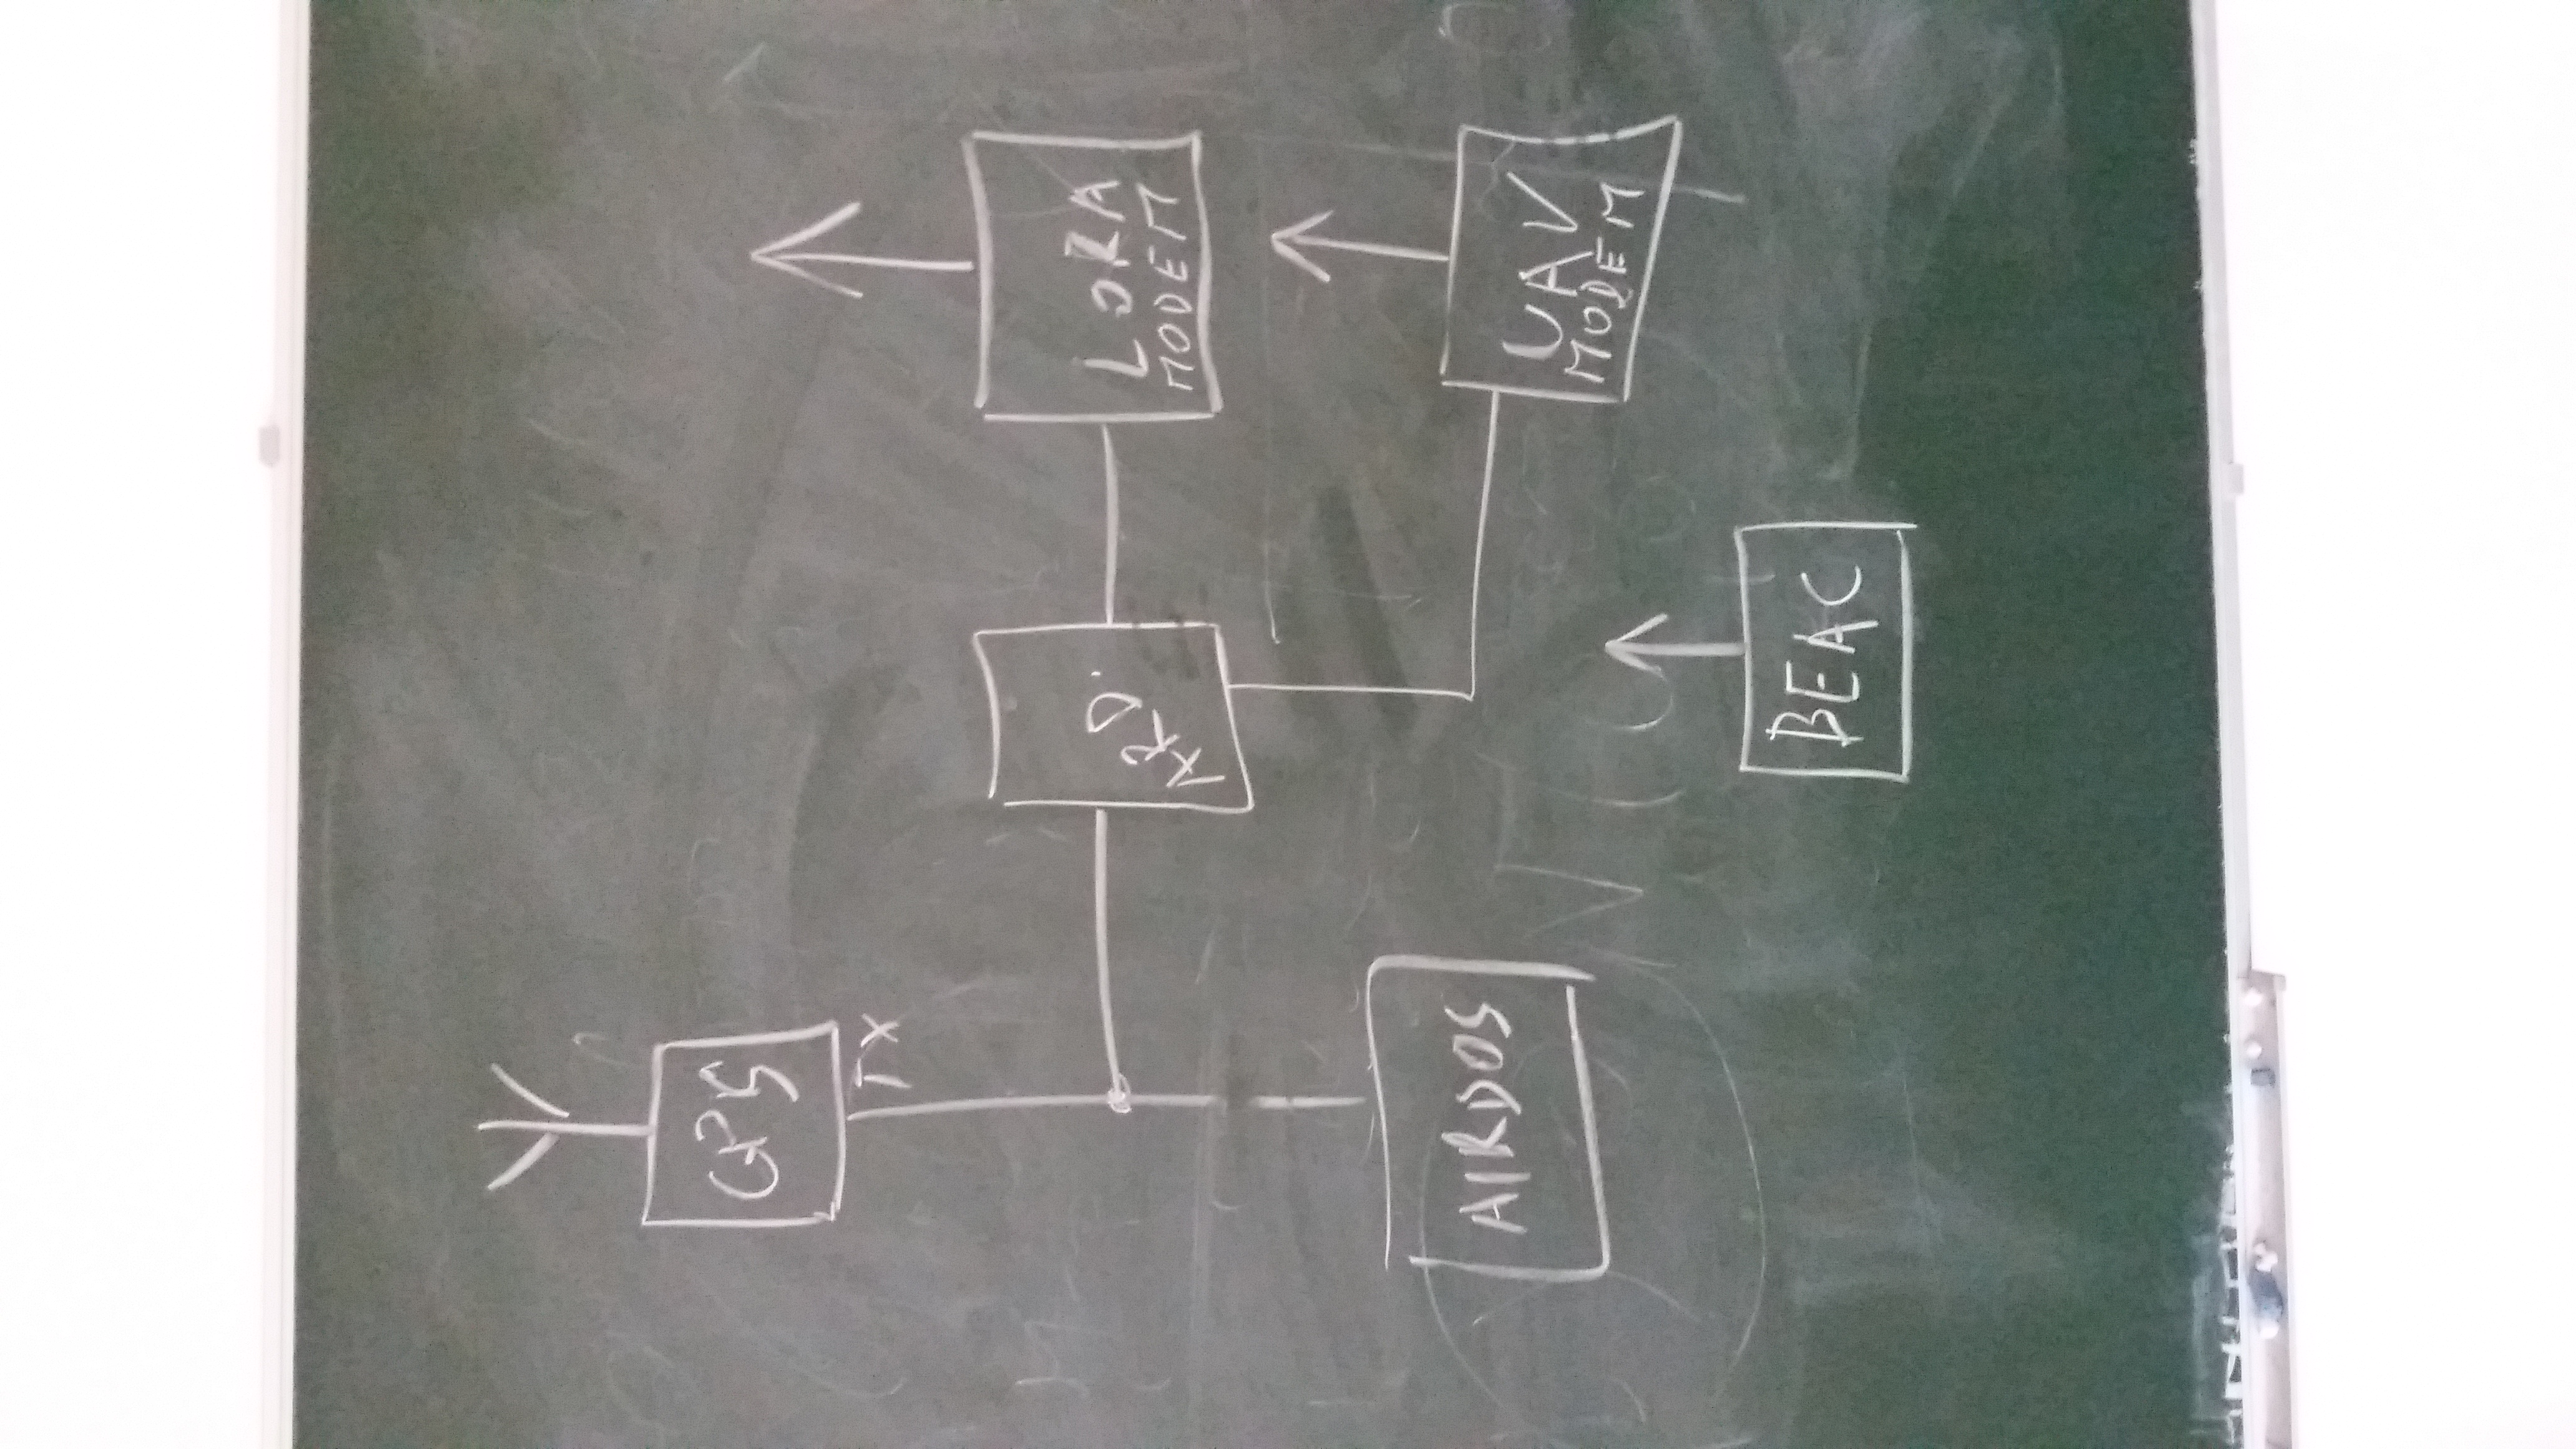 GPS
TX
ARD.
LORA
MODEM
AIRDOS
UAV
MODEM
BEAC